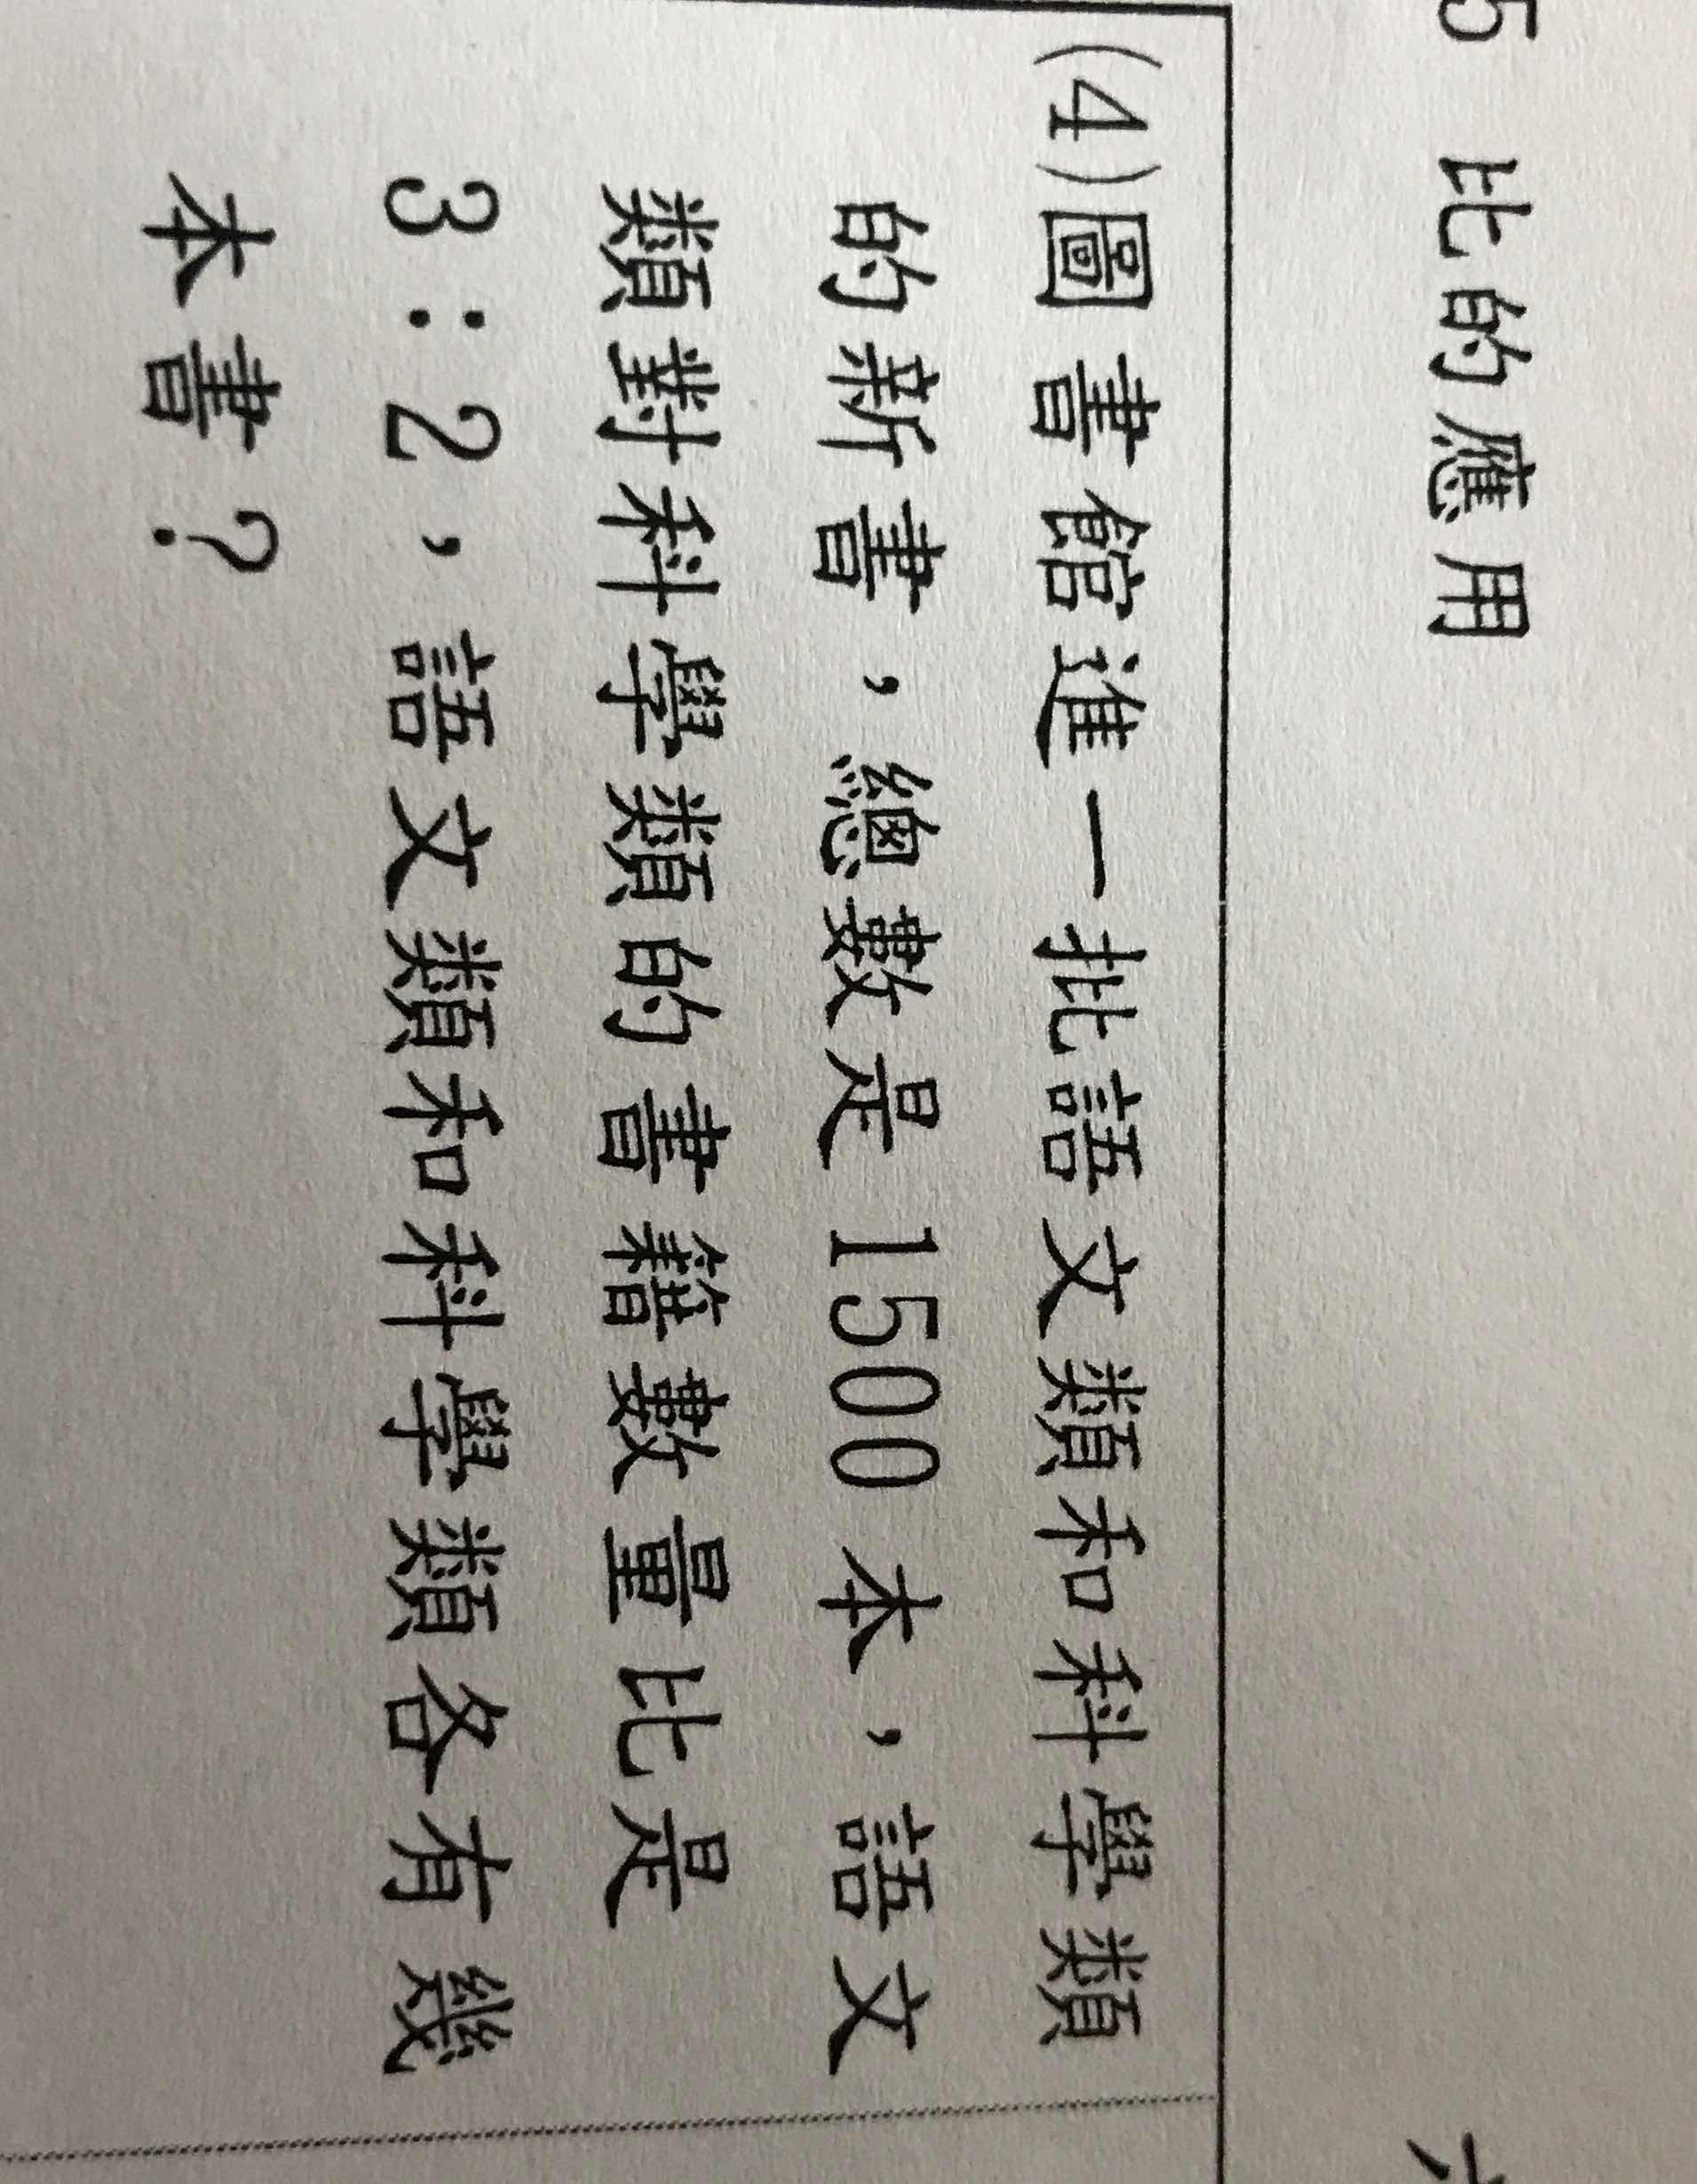 5 比的應用
(4)圖書館進一批語文類和科學類
的新書,總數是 1500 本,語文
類對科學類的書籍數量比是
3:2,語文類和科學類各有幾
本書?